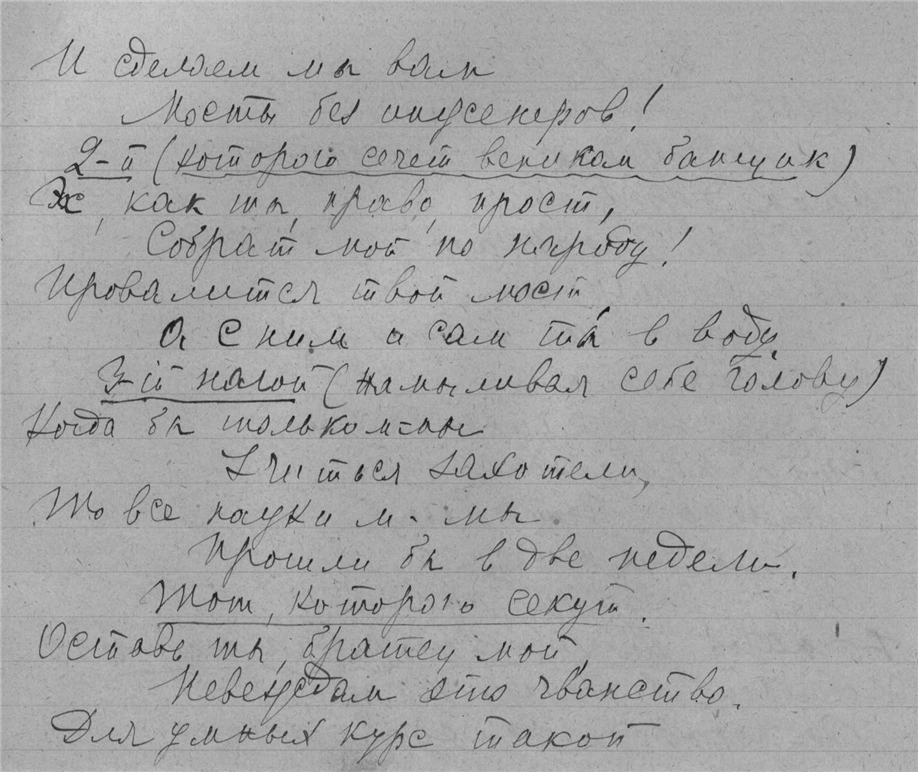 И сделаем мы вам
Мосты без инженеров!
2-й (которого сечет веником банщик)
Эх, как ты, право, прост,
Собрат мой по народу!
Провалится твой мост,
А с ним и сам ты в воду.
3-ий нагой (намыливая себе голову)
Когда бы только м-мы
Учиться захотели,
То все науки м-мы
Прошли бы в две недели.
Тот, которого секут.
Оставь ты, братец мой,
Невеждам это чванство.
Для умных курс такой